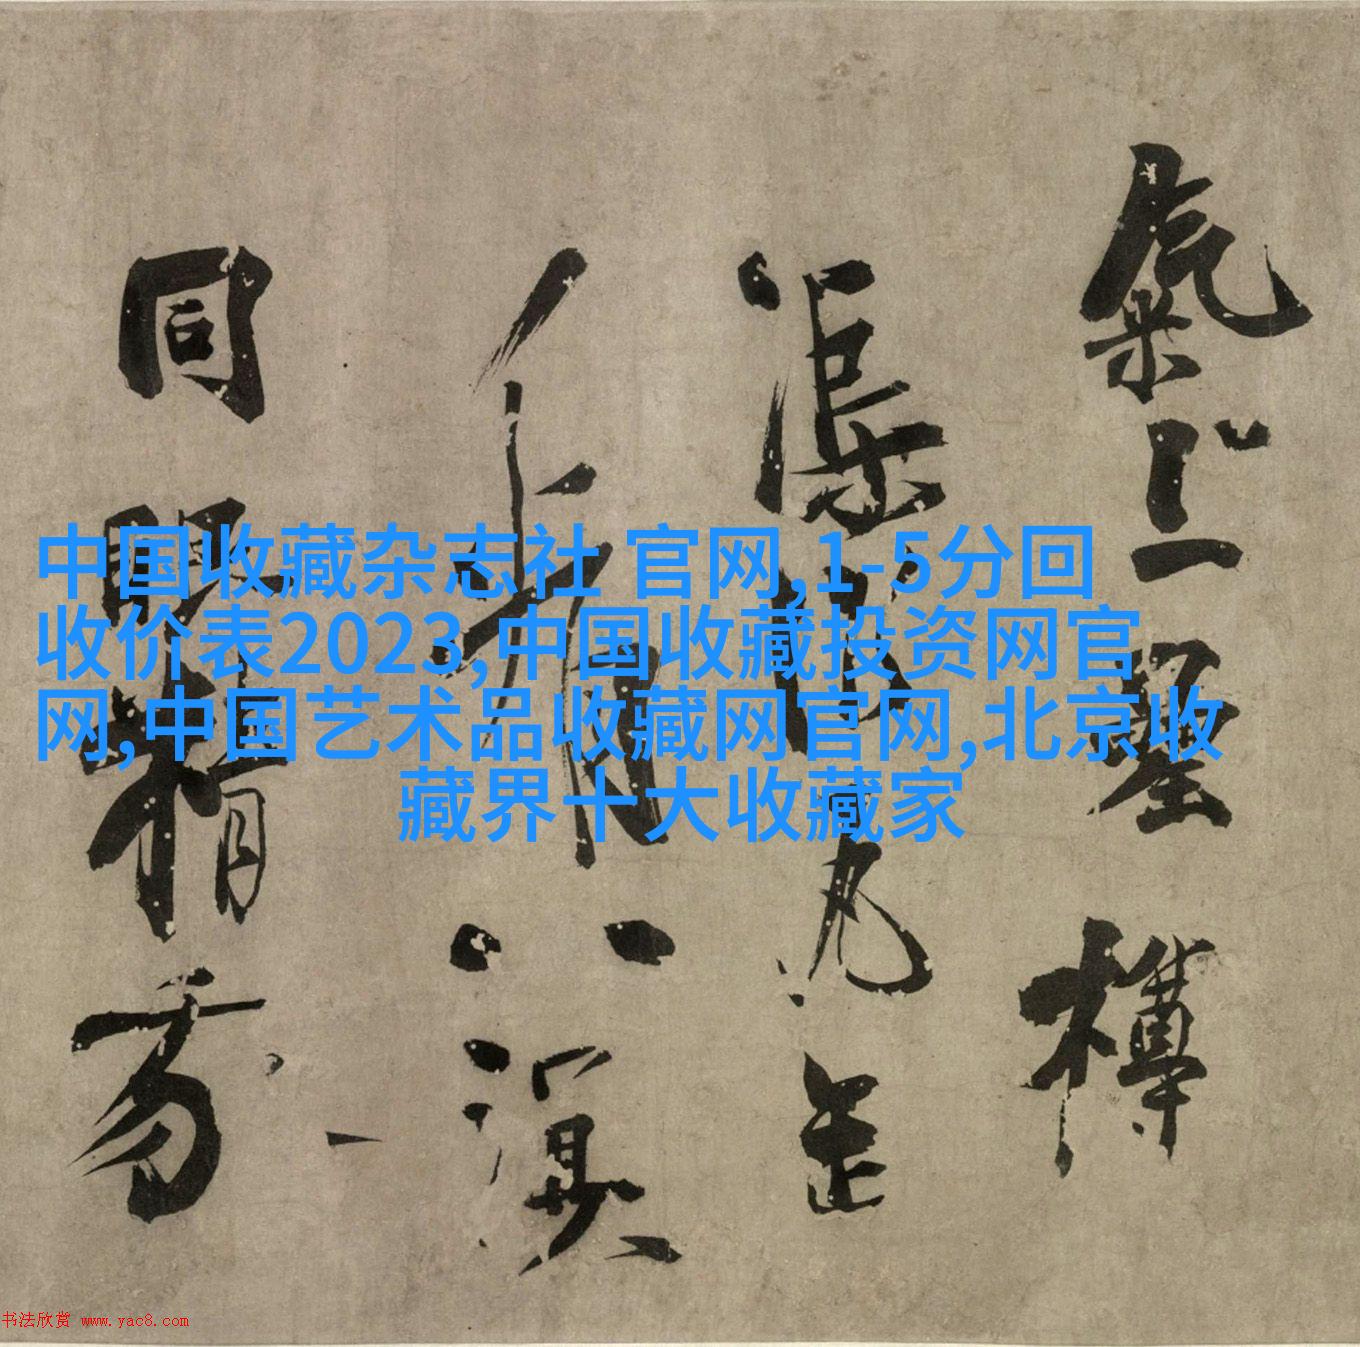 中国收藏杂志社 官网,1-5分回
收价表2023,中国收藏投资网官
网,中国艺术品收藏网官网,北京收
藏界十大收藏家
氣上
渠
八溟
同眼精
书法欣赏 www.yac8.com